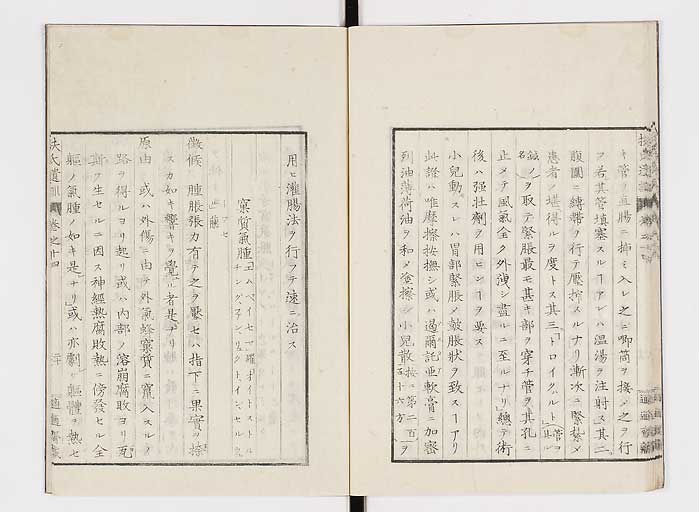 キ管ヲ直腸ニ挿ミ入レ之ニ喞筒ヲ接メ之ヲ行
フ若其管填塞スルヿアレハ温湯ヲ注射ス其二
腹圍ニ縛帶ヲ行テ壓抑スルナリ漸次ニ緊紮メ
患者ノ堪得ルヲ度トス其三トロイクハルト
ヲ取テ緊脹最モ甚キ部ヲ穿チ管ヲ其孔ニ
止メテ風氣全ク外洩シ盡ルニ至ルナリ總テ術
後ハ强壮劑ヲ用ヒンヿヲ要ス
小兒動スレハ胃部緊脹メ皷脹状ヲ致スヿアリ
此證ハ唯摩擦按撫シ或ハ遏爾託亜軟膏ニ加密
列油薄荷油ヲ和メ塗擦シ小兒散
用ヒ灌腸法ヲ行フテ速ニ治ス
窠質氣腫
徴候 腫脹張力有テ之ヲ壓セハ指下ニ果實ヲ捺
スカ如キ響キヲ覺ル者是ナリ
原由 或ハ外傷ニ由テ外氣蜂窠質ニ竄入スルノ
路ヲ得ルヨリ起リ或ハ内部ノ溶崩腐敗ヨリ瓦
斯ヲ生セルニ因ス神經熱腐敗熱ニ傍發セル全
軀ノ氣腫ノ如キ是ナリ或ハ亦劇ク軀體ヲ熱セ
扶氏遺訓 巻之十四